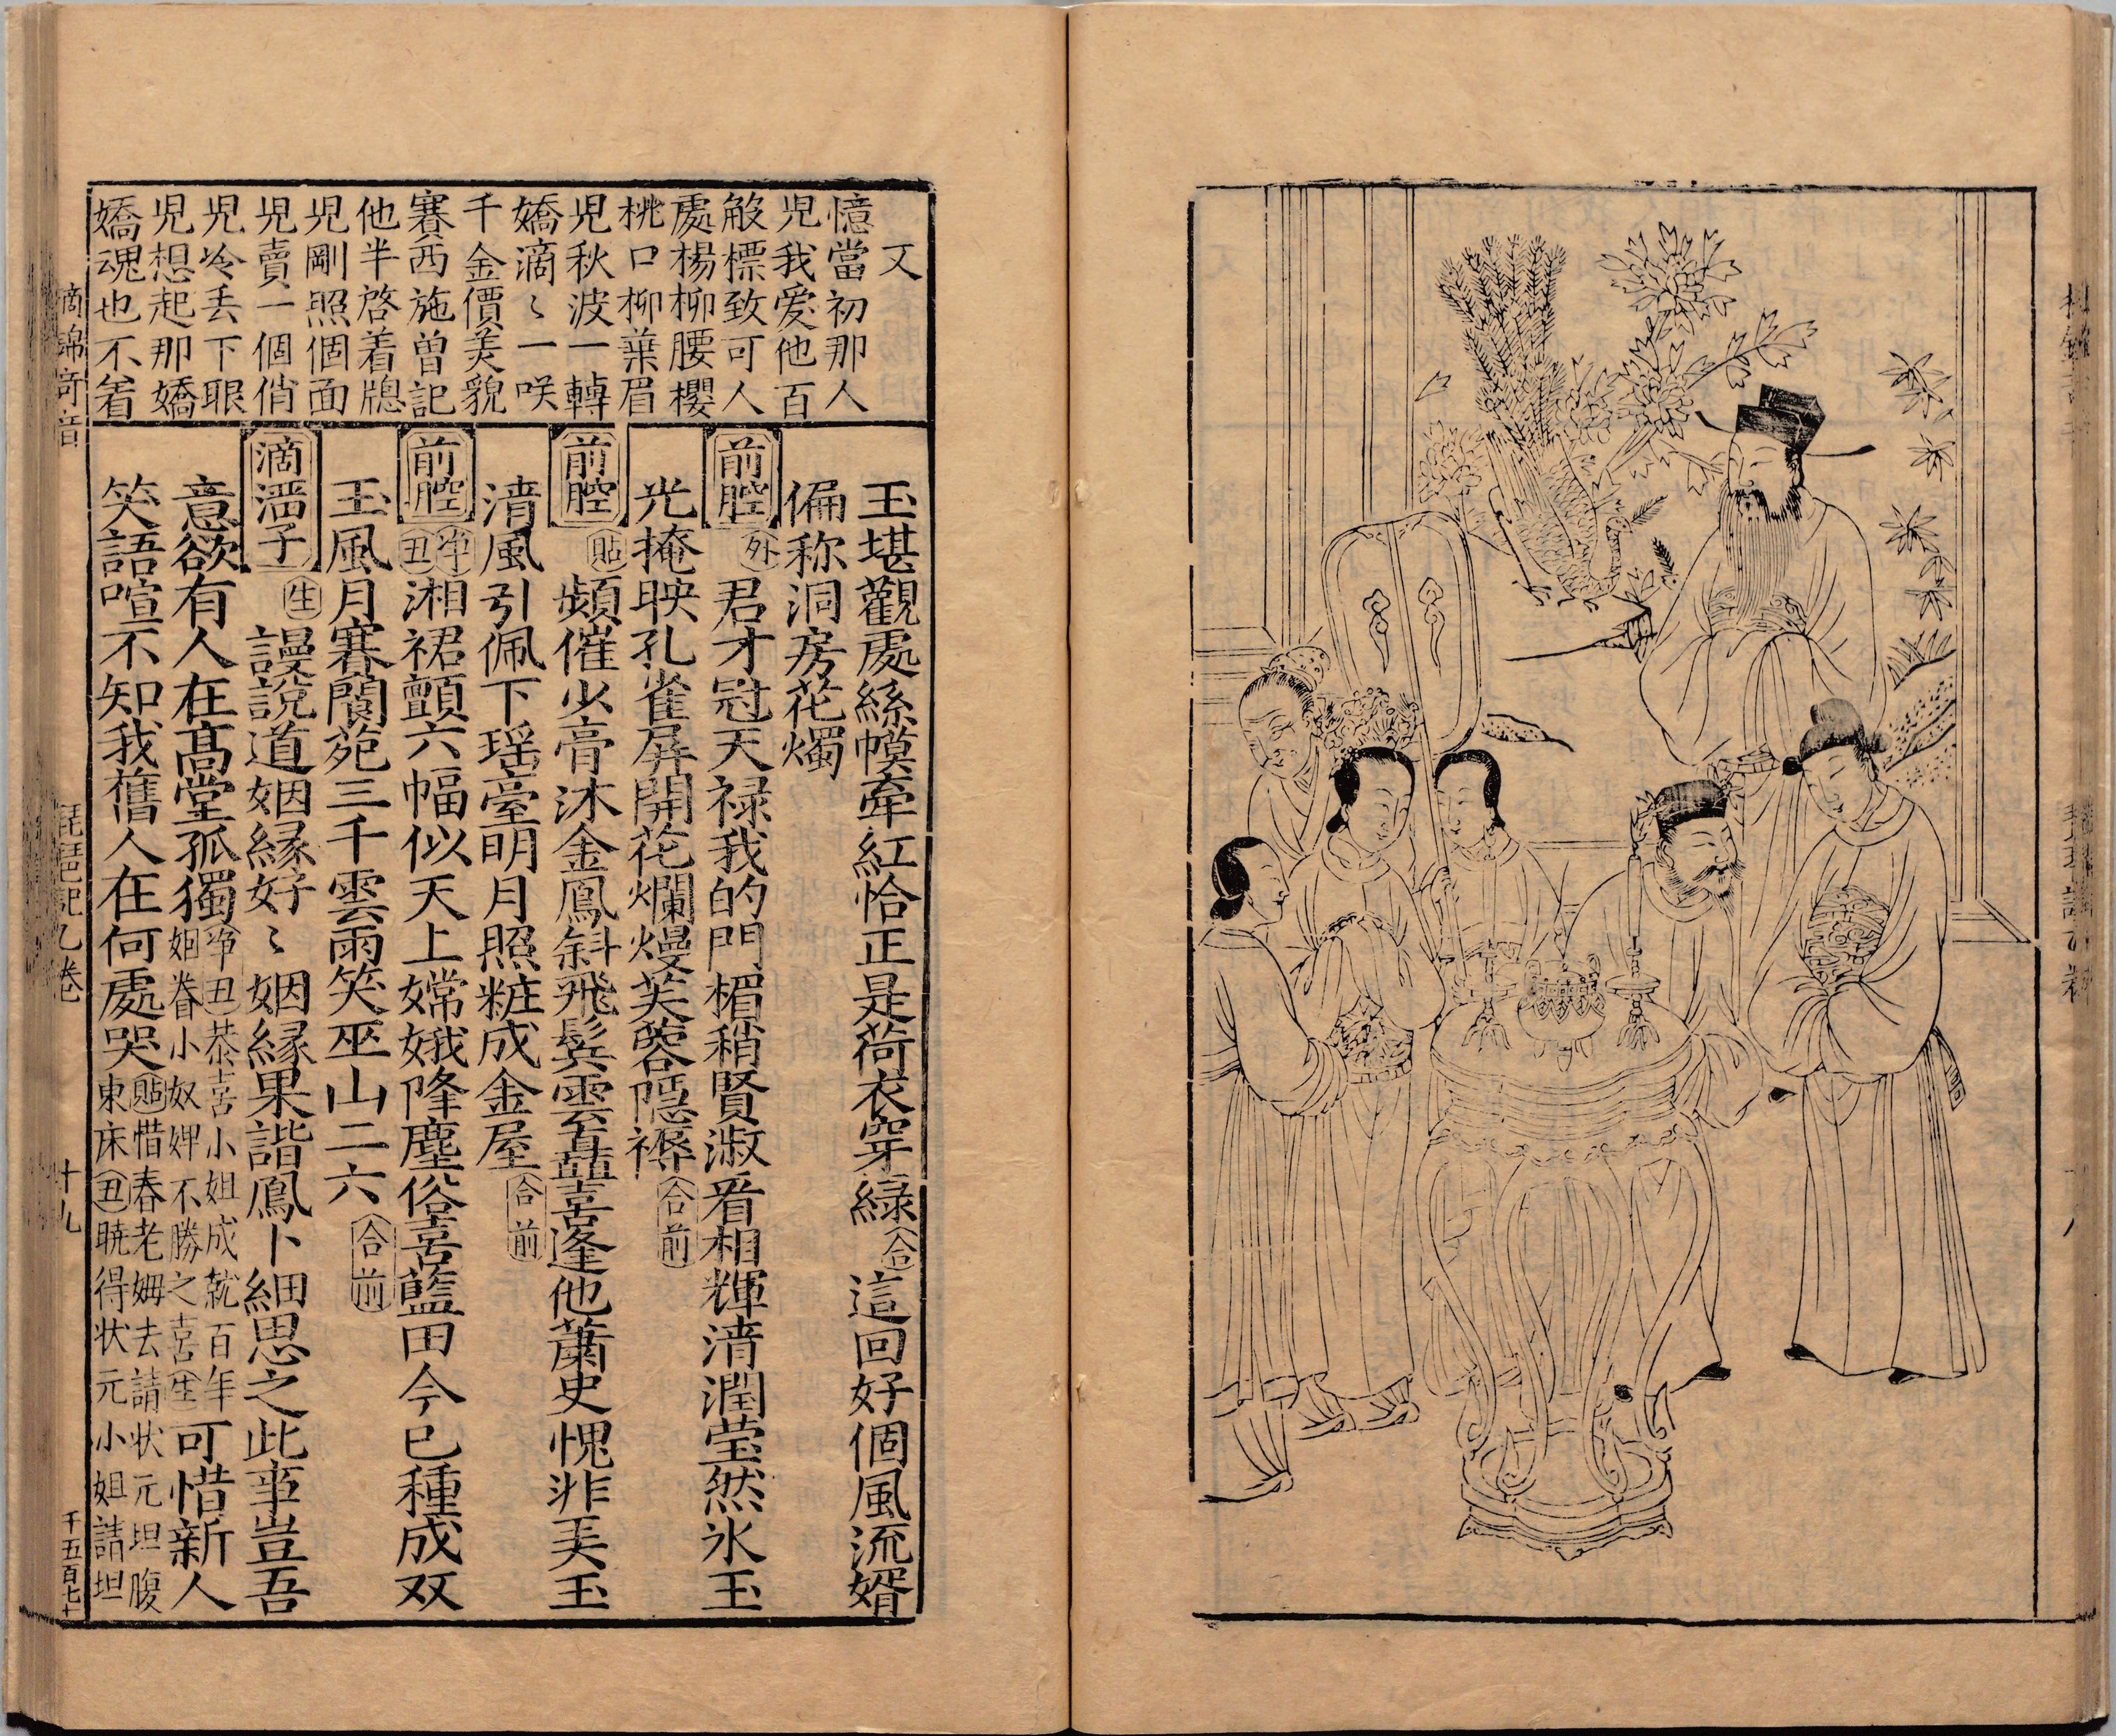 又
憶當初那人
児我愛他百
般標致可人
處楊柳腰櫻
桃口柳葉眉
児秋波一轉
嬌滴〻一咲
千金價美貌
賽西施曾記
他半啓着牕
児剛照個面
児賣一個俏
児冷丢下眼
児想起那嬌
嬌魂也不着
玉堪觀處絲幙牽紅恰正是荷衣穿綠合這回好個風流婿
偏称洞房花燭
前腔外君才冠天禄我的門楣稍賢淑看相輝清潤莹然氷玉
光掩映孔雀屏開花爛熳芙蓉隱褥合前
前腔貼頻催少膏沐金鳳斜飛鬂雲矗喜逢他蕭史愧非美玉
清風引佩下瑶臺明月照粧成金屋合前
前腔净丑湘裙顫六幅似天上嫦娥降塵俗喜藍田今已種成双
玉風月賽閬苑三千雲雨笑巫山二六合前
滴溜子生謾說道姻緣好〻姻緣果諧鳳卜細思之此事豈吾
意欲有人在高堂孤獨净丑恭喜小姐成就百年姻眷小奴婢不勝之喜生可惜新人
笑語喧不知我舊人在何處哭貼惜春老姆去請状元坦腹東床丑暁得状元小姐請坦
摘錦奇音
琵琶記乙卷
十九
千五百七十